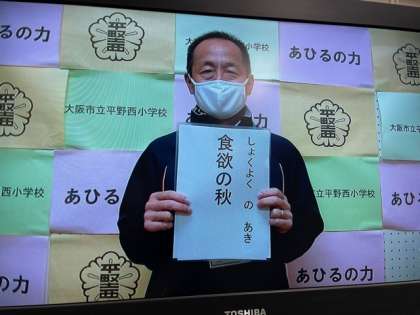 あひるの力
大阪市立平野西小学校
あひるの力
大阪市立平野西小学校
西小学校
あひるの力
市立平野西小学校
あひるの力
あひるの力
食欲の秋
しょくよく の あき
TOSHIBA